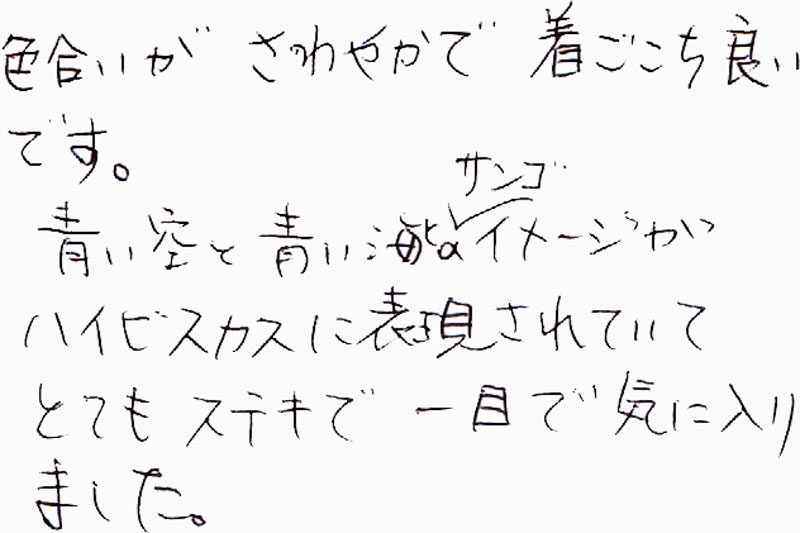 色合いが さわやかで 着ごこち良い
です。
青い空と青い海と サンゴ イメージが
ハイビスカスに表現されていて
とても ステキで 一目で 気に入り
ました。